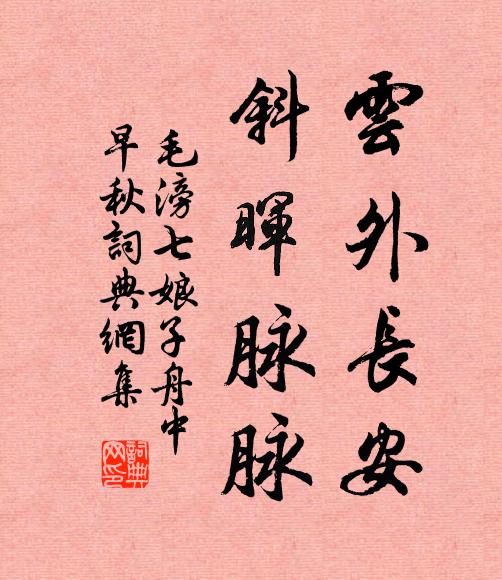 雲外長安
斜暉脉脉
毛滂七娘子舟中
早秋詞典網集
詞典
网印